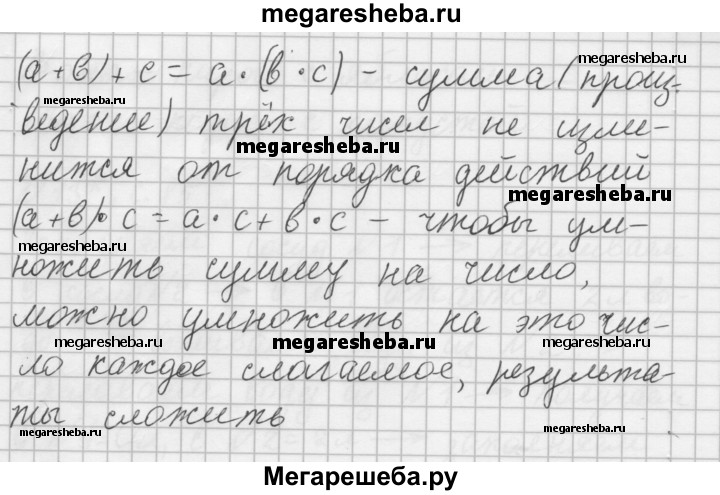 megaresheba.ru
(а+в)+с = а·(в·с) – сумма (произ-
megaresheba.ru
megaresheba.ru
ведение) трёх чисел не изме-
megaresheba.ru
нится от порядка действий
megaresheba.ru
(а+в)·с = а·с+в·с – чтобы ум-
megaresheba.ru
ножить сумму на число,
можно умножить на это чис-
megaresheba.ru
megaresheba.ru
ло каждое слагаемое, результа-
ты сложить
megaresheba.ru
megaresheba.ru
Мегарешеба.ру